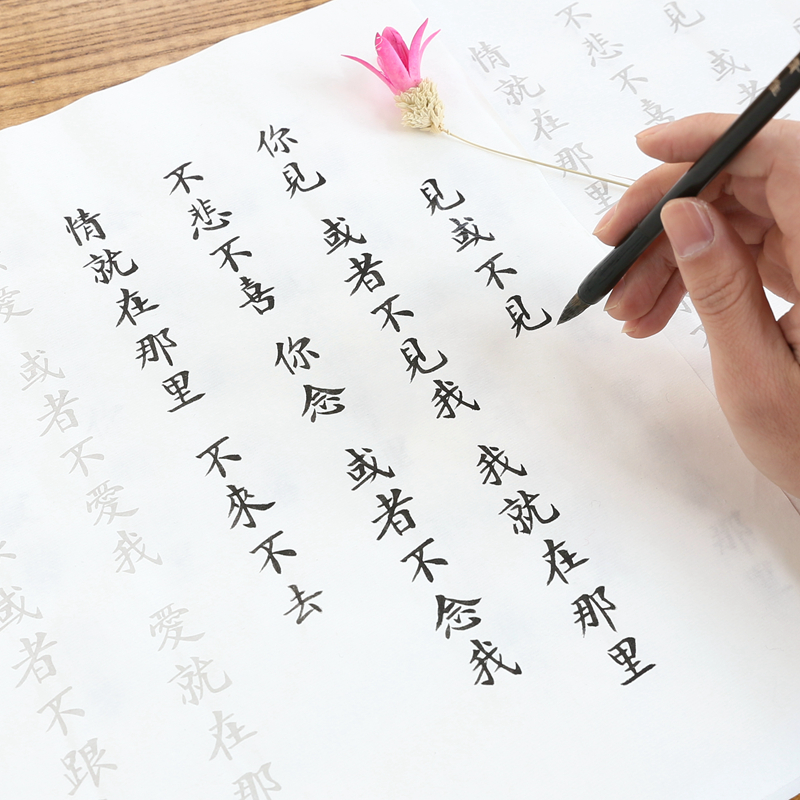 見或不見
你見 或者不見我 我就在那里
不悲不喜 你念 或者不念我
情就在那里 不來不去
愛 或者不愛我 愛就在那
或者不跟
見 或
不悲不喜
情就在那里
那里